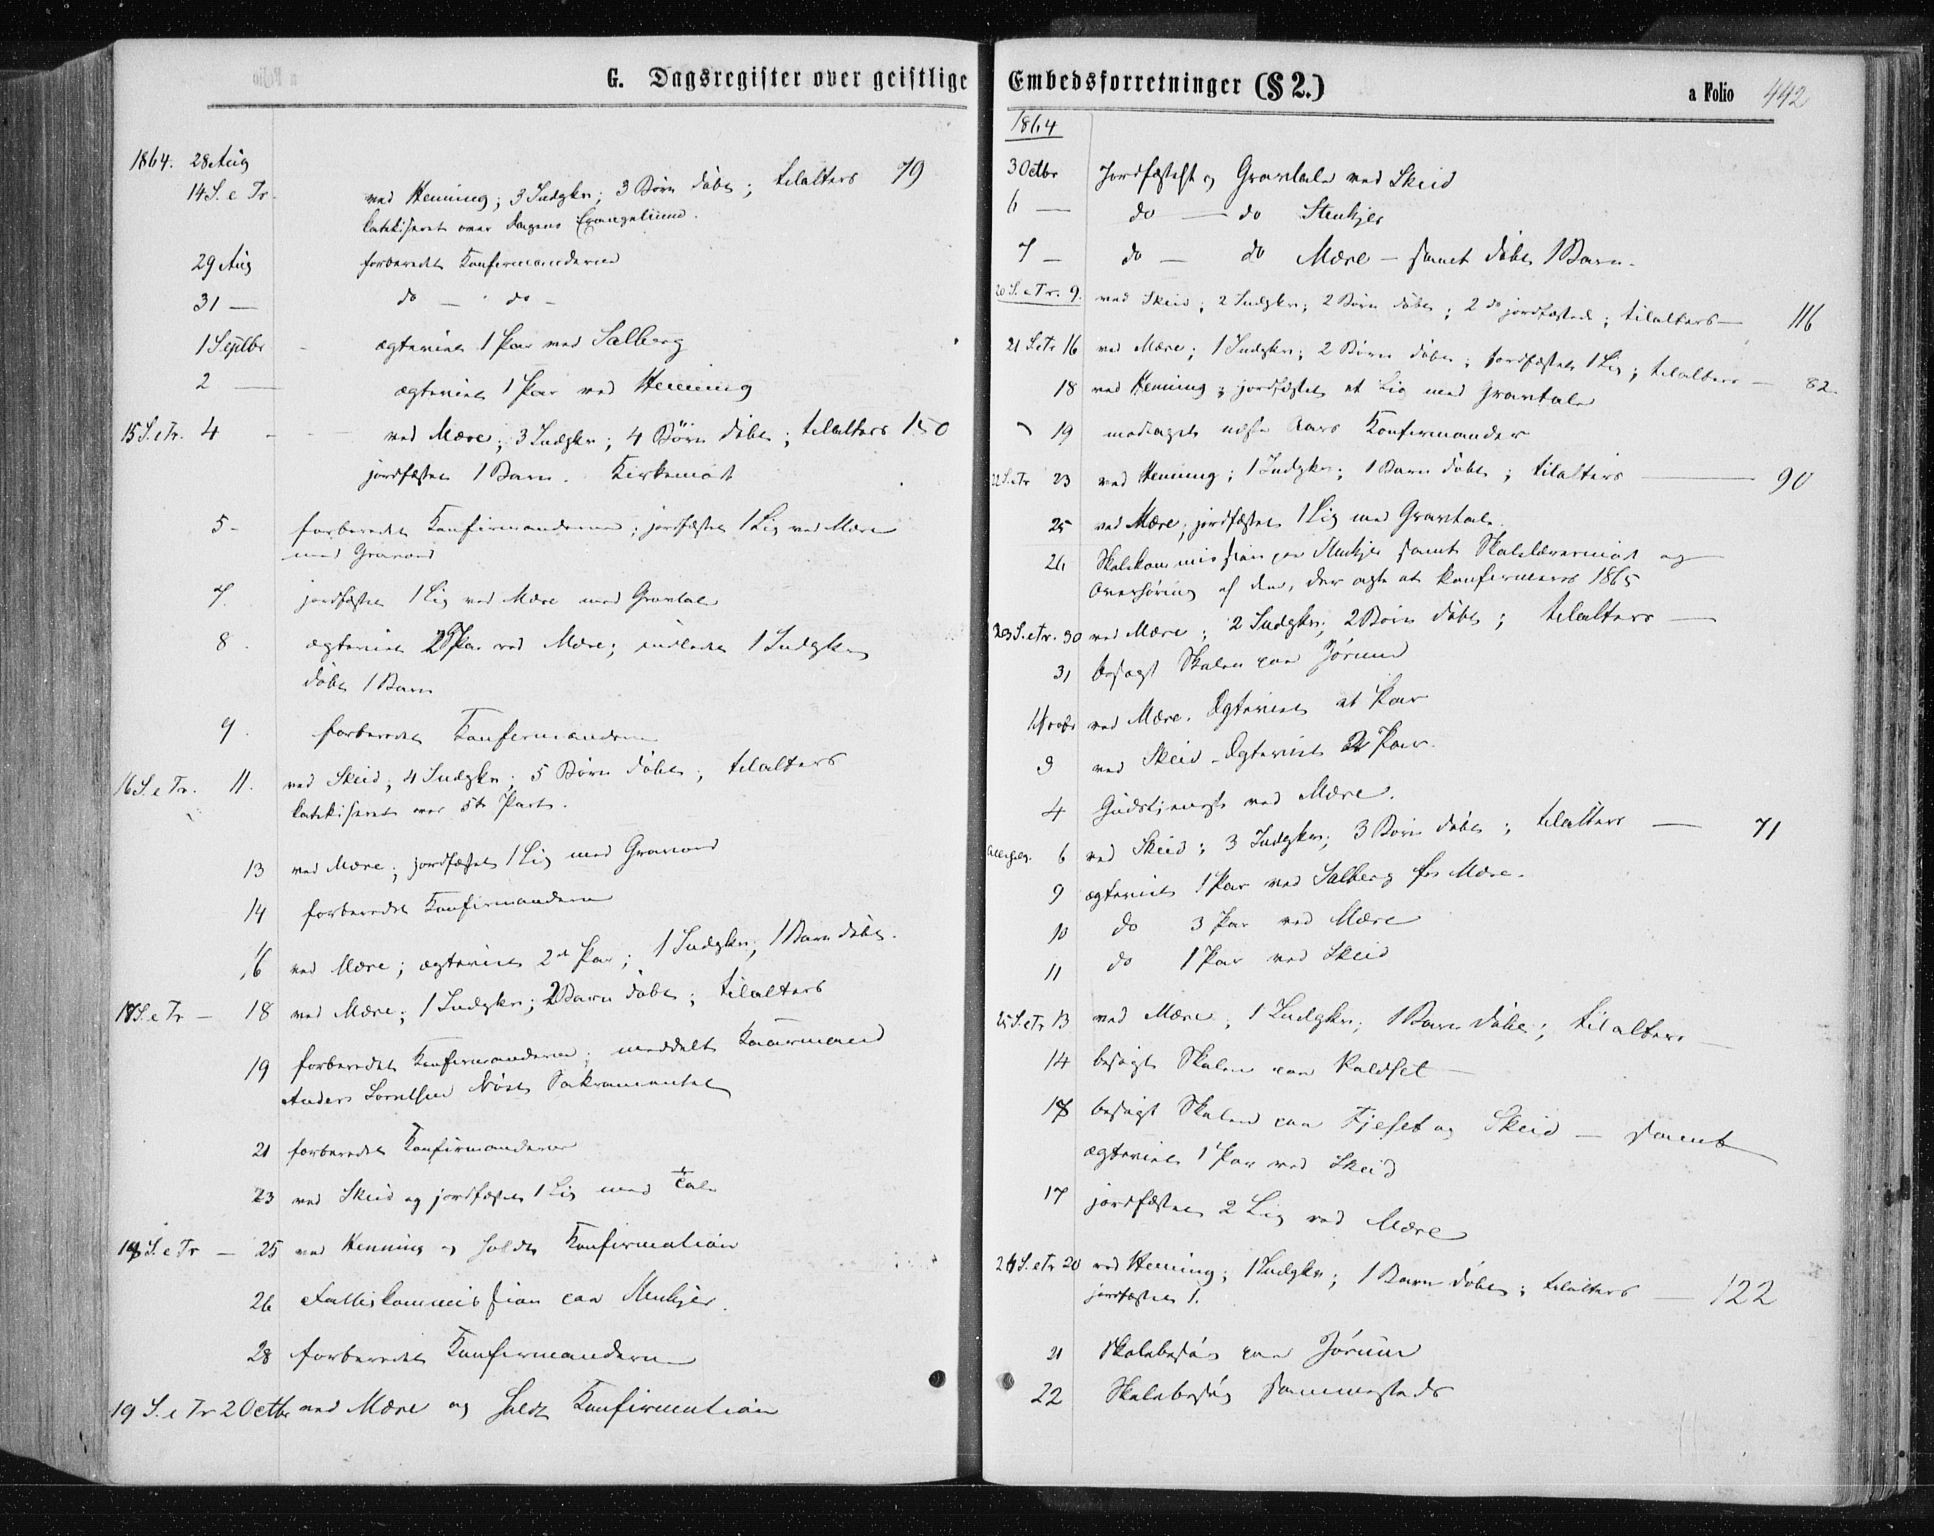 G. Dagsregister over geistlige
1864. 28 Aug
14 S. e Tr. ved Henning; 3 Indgkv; 3 Børn døbt; tilalters 79
katekiseret over dagens Evangelium.
29 Aug forberedet Konfirmanderne
31 — do — do —
1 Septbr ægteviet 1 Par ved Salberg
2 — ægteviet 1 Par ved Henning
15 S. e Tr. 4 ved Mære; 3 Indgkv; 4 Børn døbt; tilalters 150
jordfæstet 1 Barn. Kirkemøt
5 - forberedet Konfirmanderne; jordfæstet 1 Lig ved Mære
med Gravord
7. jordfæstet 1 Lig ved Mære med Gravtale
8. ægteviet 2 Par ved Mære; indledet 1 Indgkv
døbt 1 Barn
9. forberedet Konfirmanderne
16 S. e Tr. 11. ved Skeid; 4 Indgkv; 5 Børn døbt; tilalters
katekiseret over 5te Part.
13 ved Mære; jordfæstet 1 Lig med Gravord
14 forberedet Konfirmanderne
16 ved Mære; ægteviet 2 Par; 1 Indgkv; 1 Barn døbt.
17 S. e Tr — 18 ved Mære; 1 Indgkv; 2 Børn døbt; tilalters
19 forberedet Konfirmanderne; meddelt Kaarmand
Anders Sakramentet
21 forberedet Konfirmanderne
23 ved Skeid og jordfæstet 1 Lig med Tale
18 S. e Tr — 25 ved Henning og holdt Konfirmation
26 Fattigkommission paa Stenkjer.
28 forberedet Konfirmanderne
19 S. e Tr 2 Octbr ved Mære og holdt Konfirmation
Embedsforretninger (§ 2.)
a Folio 442
1864
3 Octbr Jordfæstelse og Gravtale ved Skeid
6 — do — do Stenkjer
7 — do — do Mære — samt døbt 1 Barn.
20 S. e Tr. 9. ved Skeid; 2 Indgkv; 2 Børn døbt; 2 do jordfæstede; tilalters — 116
21 S e Tr 16 ved Mære; 1 Indgkv; 2 Børn døbt; jordfæstet 1 Lig; tilalters — 82
18 ved Henning; jordfæstet et Lig med Gravtale
19 modtaget næste Aars Konfirmander
22 S. e Tr 23 ved Henning; 1 Indgkv; 1 Barn døbt; tilalters — 90
25 ved Mære; jordfæstet 1 Lig med Gravtale.
26 Skolekommission paa Stenkjer samt Skolelærermøt og
Overhøring af dem, der agte at konfirmeres 1865
23 S. e Tr. 30 ved Mære; 2 Indgkv; 2 Børn døbt; tilalters —
31 besøgt Skolen paa Jørum
1 Novbr ved Mære. Ægteviet et Par
3 ved Skeid - Ægteviet 2 Par.
4 Gudstjeneste ved Mære.
6 ved Skeid; 3 Indgkv; 3 Børn døbt; tilalters — 71
9 ægteviet 1 Par ved Salberg for Mære.
10 do 3 Par ved Mære
11 do 1 Par ved Skeid
25 S. e Tr 13 ved Mære; 1 Indgkv; 1 Barn døbt; tilalters —
14 besøgt Skolen paa
besøgt Skolen paa Fjeset og Skeid — samt
ægteviet 1 Par ved Skeid
17 jordfæstet 2 Lig ved Mære
26 S. e Tr 20 ved Henning; 1 Indgkv; 1 Barn døbt; tilalters — 122
jordfæstet 1.
21 Skolebesøg paa Jørum
22 Skolebesøg sammesteds